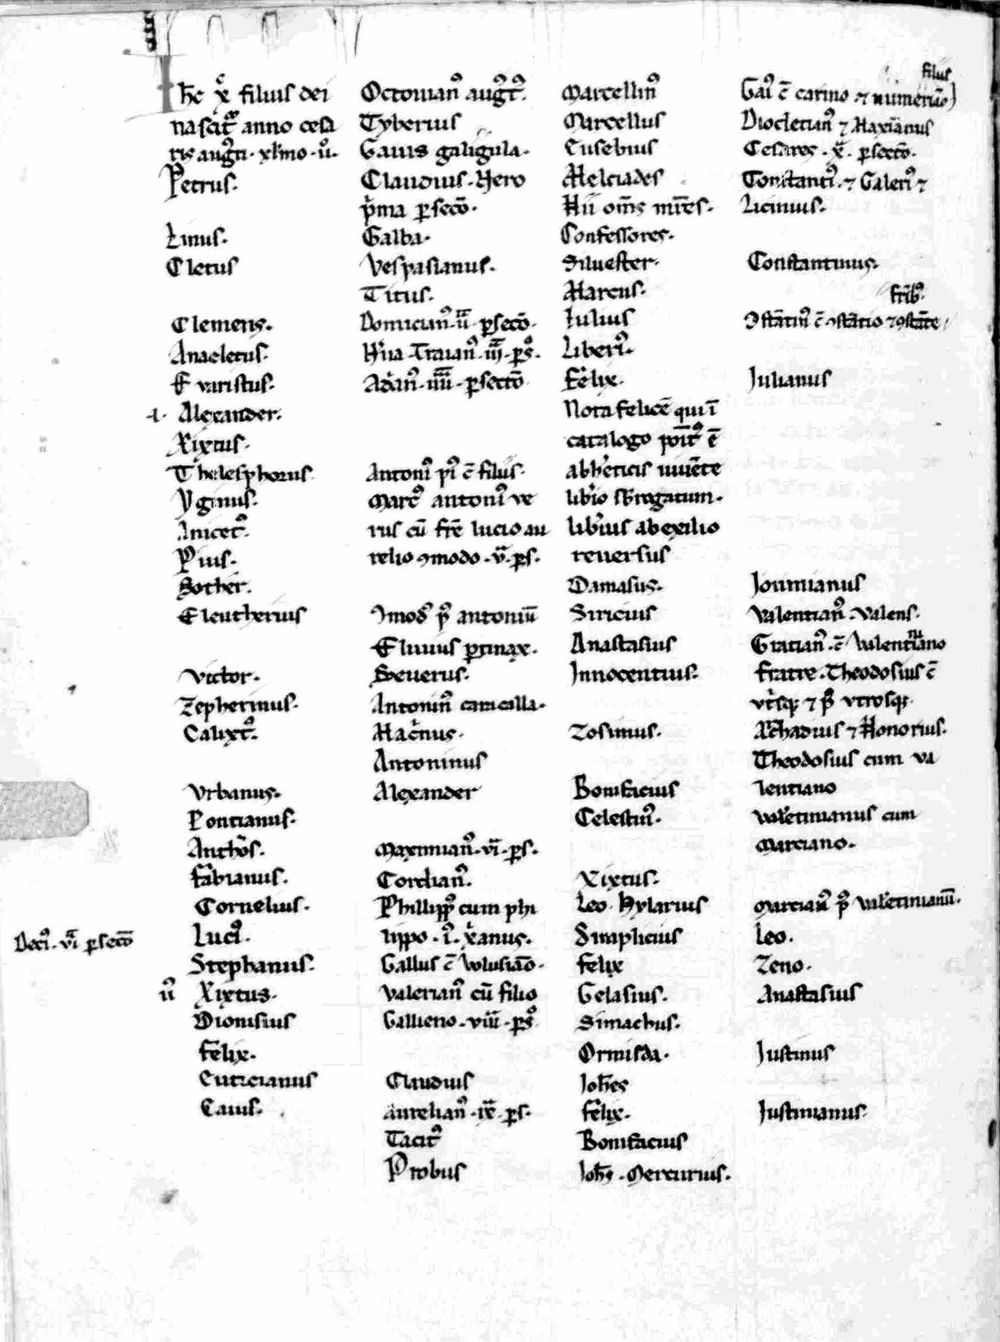 Ihc xp̄c filius dei
nascit᷑ anno cesa
ris augti · xlmo · ii ·
Petrus ·
Linus ·
Cletus
Clemens ·
Anacletus ·
Evaristus ·
·i· Alexander ·
Xixtus ·
Thelesphorus
Yginus ·
Anicetꝰ
Pius ·
Sother ·
Eleutherius
Victor ·
Zepherinus ·
Calixtꝰ ·
Vrbanus ·
Pontianus ·
Antheros ·
Fabianus ·
Cornelius ·
Luciꝰ ·
Stephanus ·
ii Xixtus ·
Dionisius
Felix ·
Euticianus
Caius ·
Deciꝰ · vii ꝑsecō
Octouianꝰ augtꝰ ·
Tyberius
Gaius galigula ·
Claudius · Nero
pͥma ꝑsecō ·
Galba ·
Vespasianus ·
Titus ·
Domicianꝰ · ii · ꝑsecō ·
Nꝰua · Traianꝰ · iii · ꝑs ·
Adꝛianꝰ · iiii · ꝑsectō
Antoninꝰ piꝰ c̄ filiis ·
Marcꝰ antoninꝰ ve
rus cū fr̄e lucio au
relio ꝯmodo · v · ꝑs ·
ꝯmodꝰ pꝰ antoniū
Eluius ꝑtinax ·
Seuerus ·
Antoninꝰ caracalla ·
Macͥnus ·
Antoninus
Alexander
Maximianꝰ · vi · ꝑs ·
Gordianꝰ ·
Phillippꝰ cum phi
lippo · i · xp̄anus ·
Gallus c̄ Volusiāo ·
Valerianꝰ cū filio
Gallieno · viii · ꝑs
Claudius
Aurelianꝰ · ix · ꝑs ·
Tacitꝰ
Probus
Marcellinꝰ
Marcellus
Eusebius
Melciades
Hii om̄s mr̄es ·
Confessores ·
Siluester ·
Marcus ·
Iulius
Liberiꝰ ·
Felix ·
Nota felicē qui ī
catalogo ponit᷑ ē
ab hereticis uiuēte
libͥio sbrogatum ·
libͥius ab exilio
reuersus
Damasus ·
Siricius
Anastasius
Innocentius ·
Zosimus ·
Bonifacius
Celestinꝰ ·
Xixtus ·
Leo · Hylarius
Simplicius
Felix
Gelasius ·
Simachus ·
Ormisda ·
Ioh̄es
Felix ·
Bonifacius
Ioh̄s · Mercurius ·
filiis
Gaiꝰ c̄ carino ⁊ numeriāo
Diocletianꝰ ⁊ Maximianus
Cesares · x · ꝑsecō ·
Constantiꝰ · ⁊ Galeriꝰ ⁊
Licinius ·
Constantinus ·
fr̄ibꝰ ·
ꝯstātinꝰ c̄ ꝯstātio ⁊ ꝯstāte
Iulianus
Iouinianus
Valentianꝰ · Valens ·
Gratianꝰ · c̄ Valentiniano
fratre · Theodosius c̄
vtͥsqꝫ ⁊ pꝰ vtrosqꝫ
Archadius ⁊ Honorius ·
Theodosius cum va
lentiano
Valētinianus cum
Marciano ·
Marcianꝰ pꝰ valētinianū ·
Leo ·
Zeno ·
Anastasius
Iustinus
Iustinianus